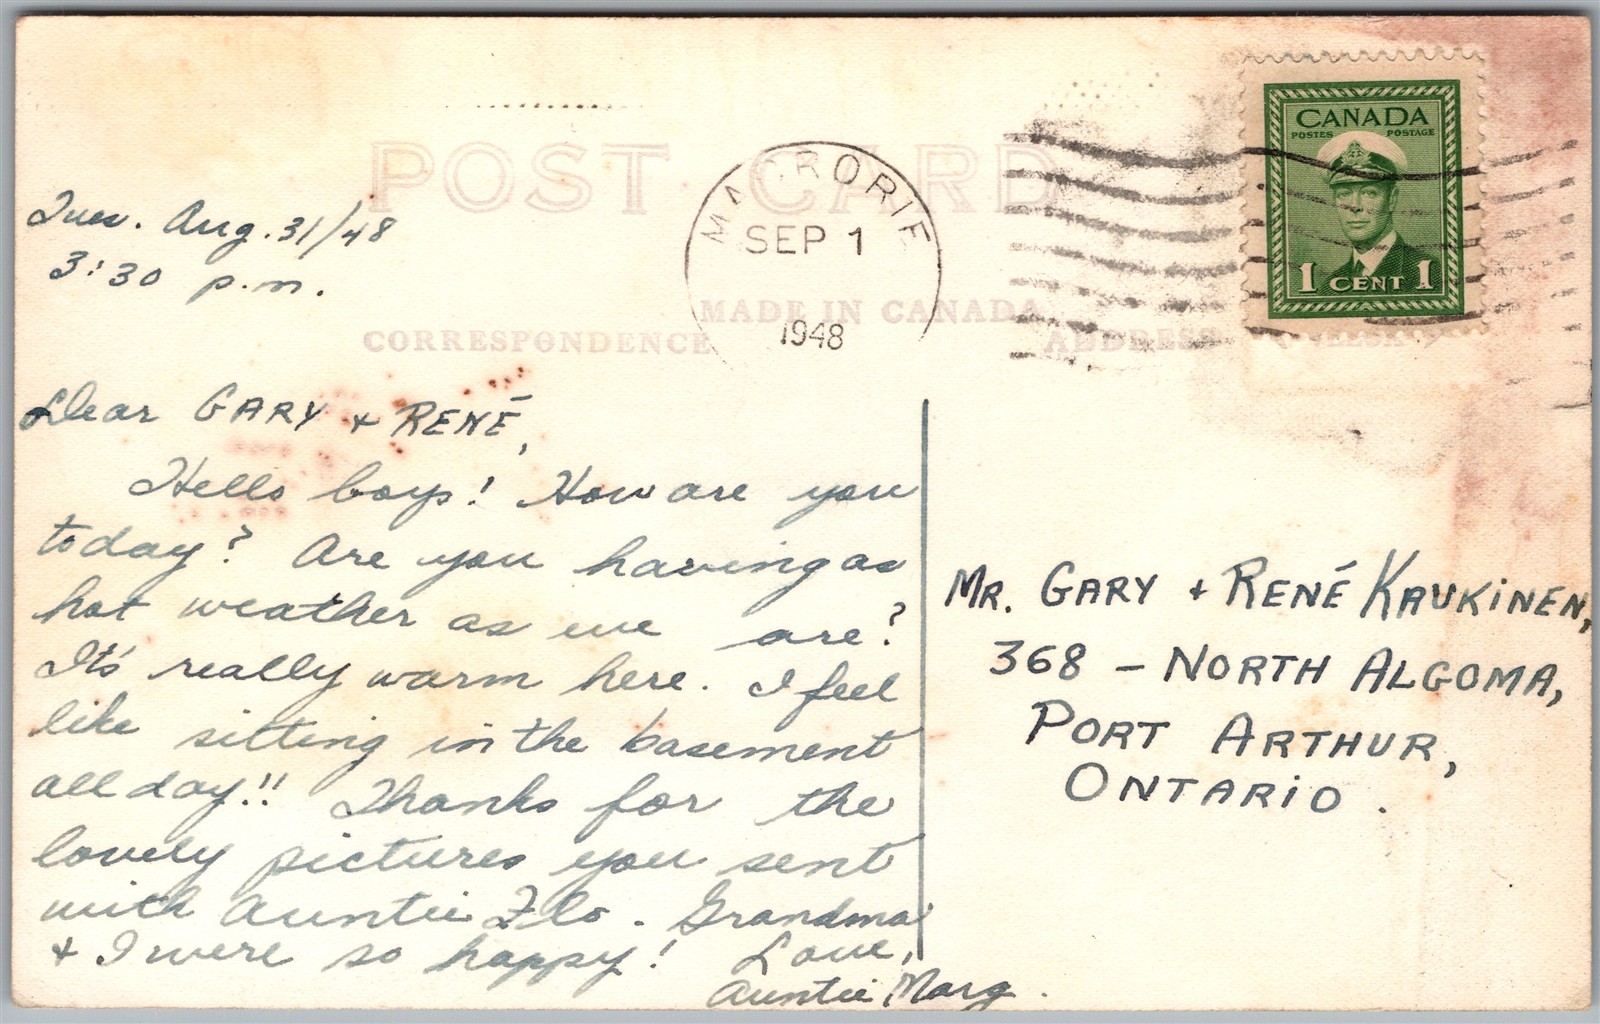 POST CARD
CANADA
POSTES POSTAGE
1 CENT 1
MACRORIE
SEP 1
1948
MADE IN CANADA
CORRESPONDENCE
ADDRESS
Tues. Aug. 31/48
3:30 p.m.
Dear GARY + RENÉ,
Hello boys! How are you
today? Are you having as
hot weather as we are?
It's really warm here. I feel
like sitting in the basement
all day!! Thanks for the
lovely pictures you sent
with Auntie Flo. Grandma
+ I were so happy! Love,
Auntie Marg.
MR. GARY + RENÉ KAUKINEN,
368 - NORTH ALGOMA,
PORT ARTHUR,
ONTARIO.